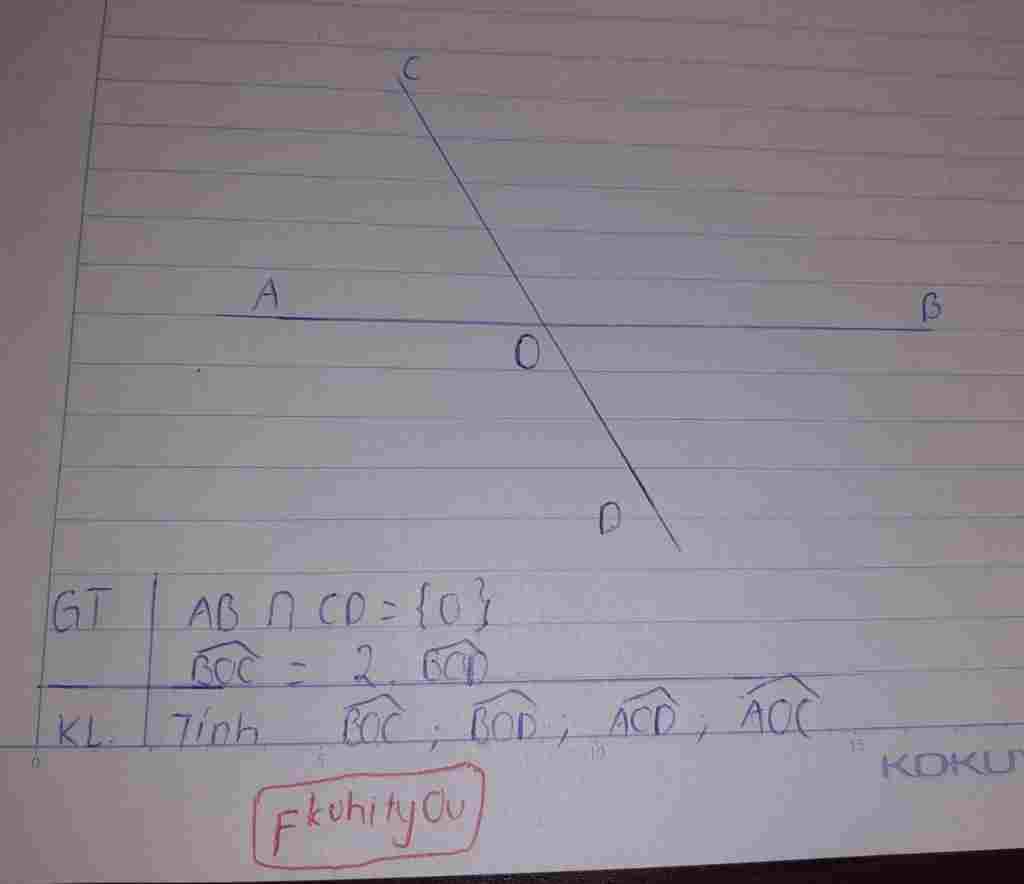 C
A
B
O
D
GT AB ∩ CD = {O}
BOC = 2. BOD
KL. Tính BOC ; BOD ; ACD ; AOC
0 5 10 15
KOKUY
FkuhityOu